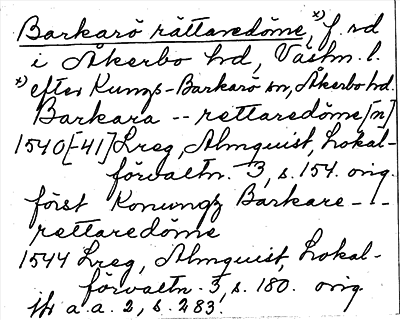 Barkarö rättaredöme,ˣ⁾ f. rd
i Åkerbo hd, Västm. l.
ˣ⁾ efter Kungs-Barkarö sn, Åkerbo hd.
Barkara -- rettaredöme[n]
1540[-41] Lreg, Almquist, Lokal-
förvaltn. 3, s. 154. orig.
först Konungz Barkare - -
rettaredöme
1544 Lreg, Almquist, Lokal-
förvaltn. 3, s. 180. orig
jfr a.a. 2, s. 283.